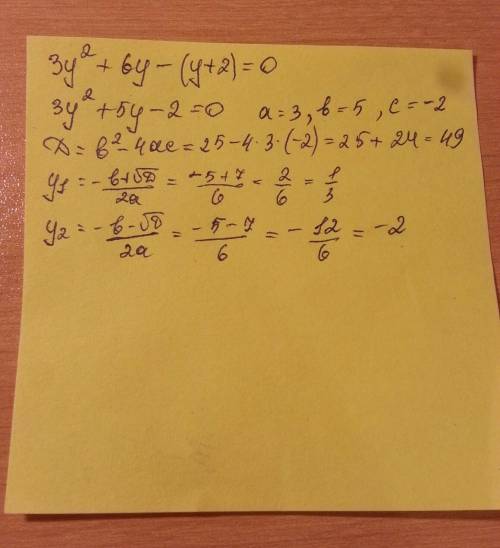 3y² + 6y − (y+2) = 0
3y² + 5y − 2 = 0   a = 3, b = 5, c = −2
D = b² − 4ac = 25 − 4·3·(−2) = 25 + 24 = 49
y₁ = −b+√D/2a = −5+7/6 = 2/6 = 1/3
y₂ = −b−√D/2a = −5−7/6 = −12/6 = −2